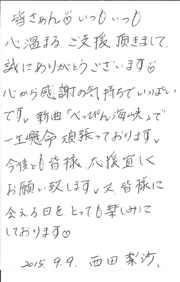 皆さぁん♡いつもいつも
心温まるご支援頂きまして、
誠にありがとうございます♡
心から感謝の気持ちでいっぱい
です。新曲「べっぴん海峡」で
一生懸命頑張っております。
今後とも皆様応援宜しく
お願い致します。又、皆様に
会える日をとっても楽しみに
しております♡
2015.9.9. 西田梨沙.